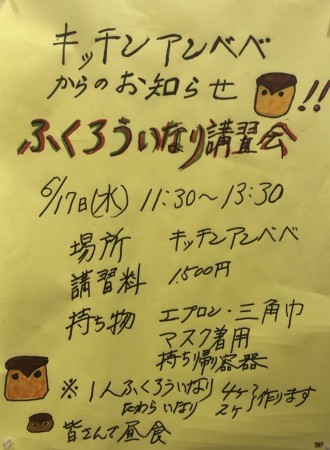 キッチンアンベベ
からのお知らせ!!
ふくろういなり講習会
6/17日(水) 11:30～13:30
場所 キッチンアンベベ
講習料 1.500円
持ち物 エプロン・三角巾
マスク着用
持ち帰容器
※1人ふくろういなり 4ケ
たわらいなり 2ケ 作ります
皆さんで昼食